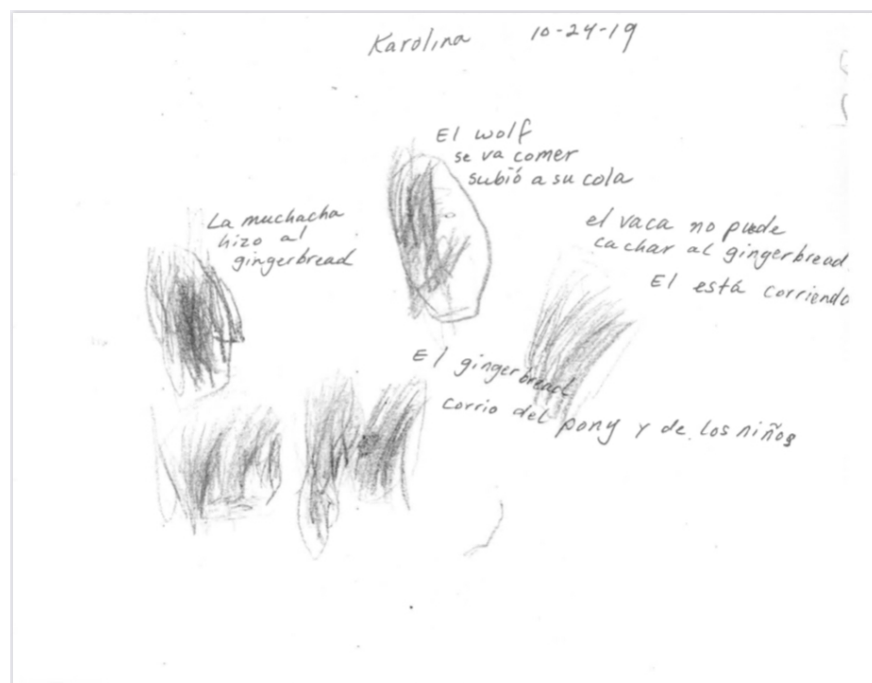 Karolina 10-24-19
El wolf
se va comer
subió a su cola
La muchacha
hizo al
gingerbread
el vaca no puede
cachar al gingerbread.
El está corriendo
El gingerbread
corrio del pony y de los niños